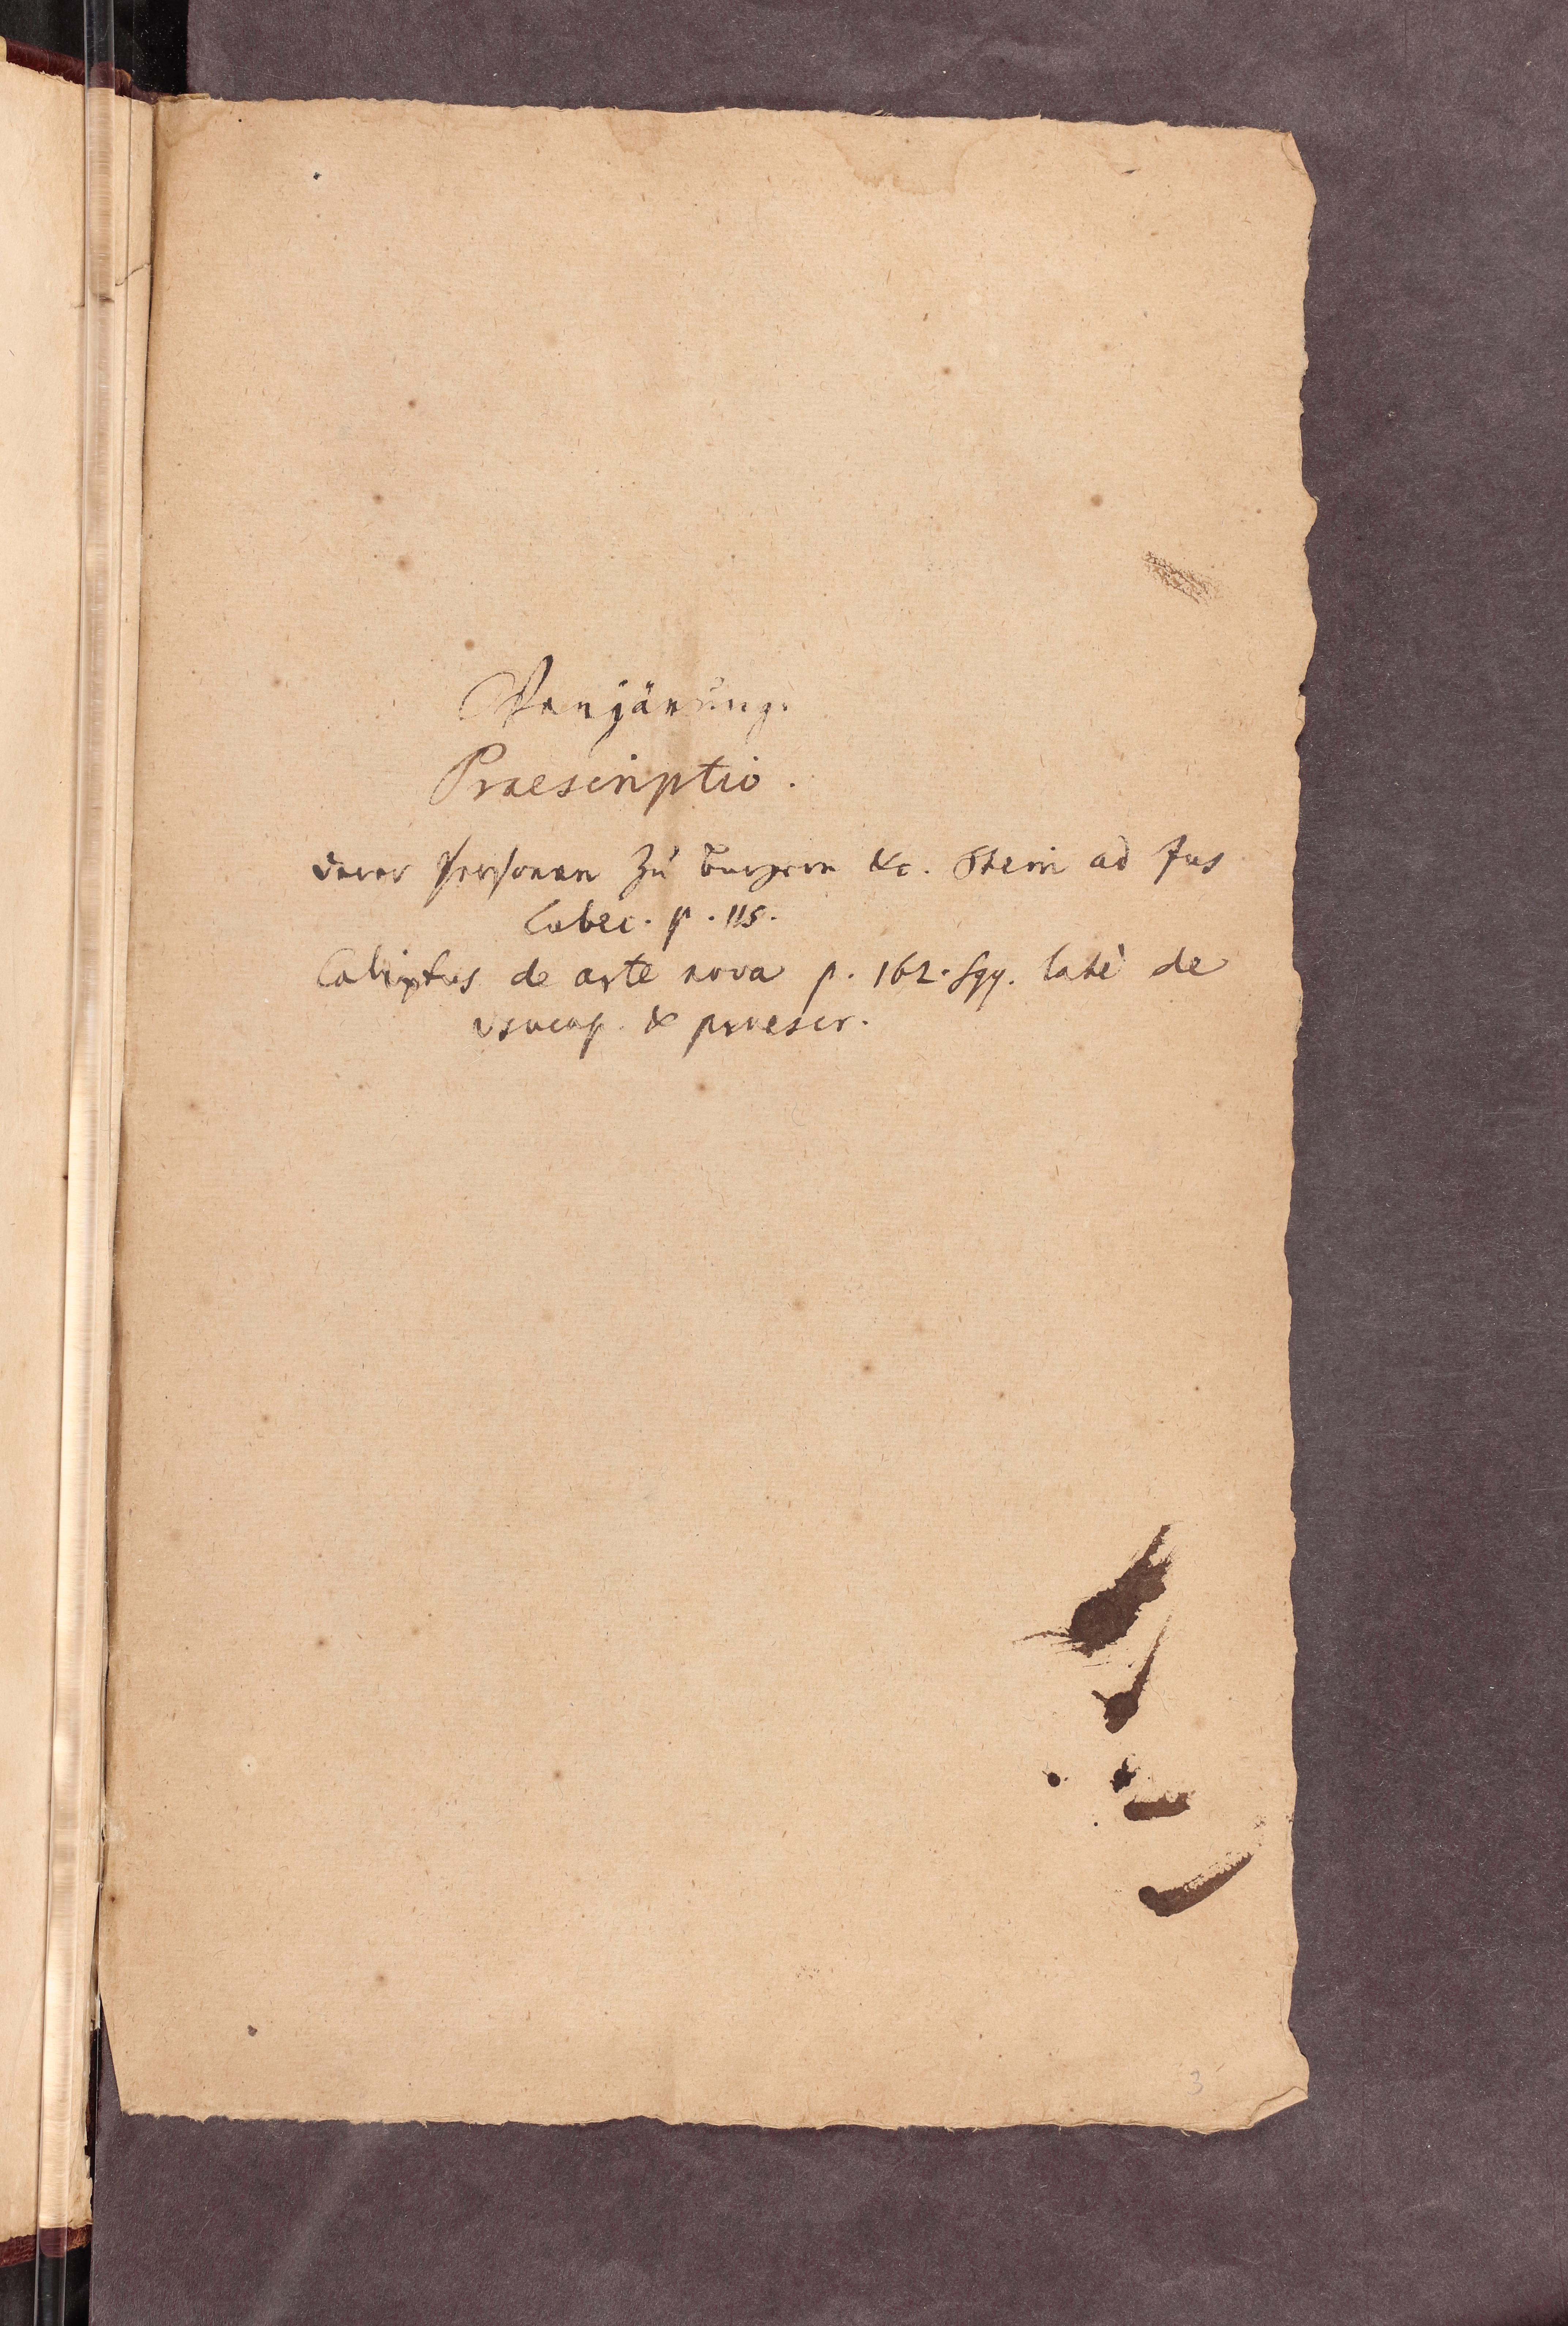 Verjärung.
Praescriptio.
derer Personen zu bürgern &c. Stein ad Jus
Lubec. p. 115.
Calixtus de arte nova p. 162. sqq. latè de
usucap. & praescr.
3